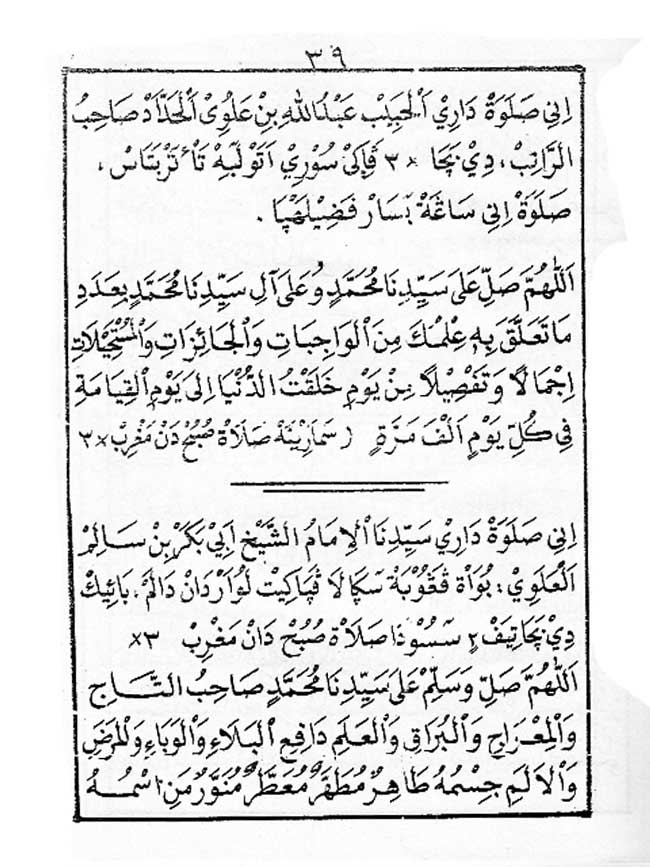 ٣٩
اِنِي صَلَوَةْ دَارِيْ اَلْحَبِيْب عَبْدُاللهِ بِنْ عَلَوِيْ اَلْحَدَّادْ صَاحِبُ
الرَّاتِبْ، دِيْ بَچَا ×٣ ڤَاكَيْ سُوْرِيْ اَتَوْ لَبِيْهْ تَاءْ تَرْبَتَاسْ،
صَلَوَةْ اِنِي سَاڠَةْ بَسَارْ فَضِيْلَهْڽَا.
اَللّٰهُمَّ صَلِّ عَلَى سَيِّدِنَا مُحَمَّدٍ وَعَلَى آلِ سَيِّدِنَا مُحَمَّدٍ بِعَدَدِ
مَا تَعَلَّقَ بِهِ عِلْمُكَ مِنَ الْوَاجِبَاتِ وَالْجَائِزَاتِ وَالْمُسْتَحِيْلَاتِ
اِجْمَالًا وَتَفْصِيْلًا مِنْ يَوْمِ خَلَقْتَ الدُّنْيَا اِلَى يَوْمِ الْقِيَامَةِ
فِي كُلِّ يَوْمٍ اَلْفَ مَرَّةٍ ( صَلَاةْ صُبُحْ دَنْ مَغْرِبْ ×٣
اِنِي صَلَوَةْ دَارِيْ سَيِّدِنَا اَلْإِمَامُ الشَّيْخ اَبِيْ بَكَرْ بِنْ سَالِمْ
اَلْعَلَوِيْ: بُوَاةْ ڤَڠُوْبَةْ سَڬَالَا ڤَڽَاكِيْت لُوَارْ دَانْ دَالَمْ، بَائِيْك
دِيْ بَچَا تِيَفْ٢ سَسُوْدَا صَلَاةْ صُبُحْ دَانْ مَغْرِبْ ×٣
اَللّٰهُمَّ صَلِّ وَسَلِّمْ عَلَى سَيِّدِنَا مُحَمَّدٍ صَاحِبُ التَّاجِ
وَالْمِعْرَاجِ وَالْبُرَاقِ وَالْعَلَمِ دَافِعِ الْبَلَاءِ وَالْوَبَاءِ وَالْمَرَضِ
وَالْاَلَمِ جِسْمُهُ طَاهِرٌ مُطَهَّرٌ مُعَطَّرٌ مُنَوَّرٌ مَنِ اسْمُهُ